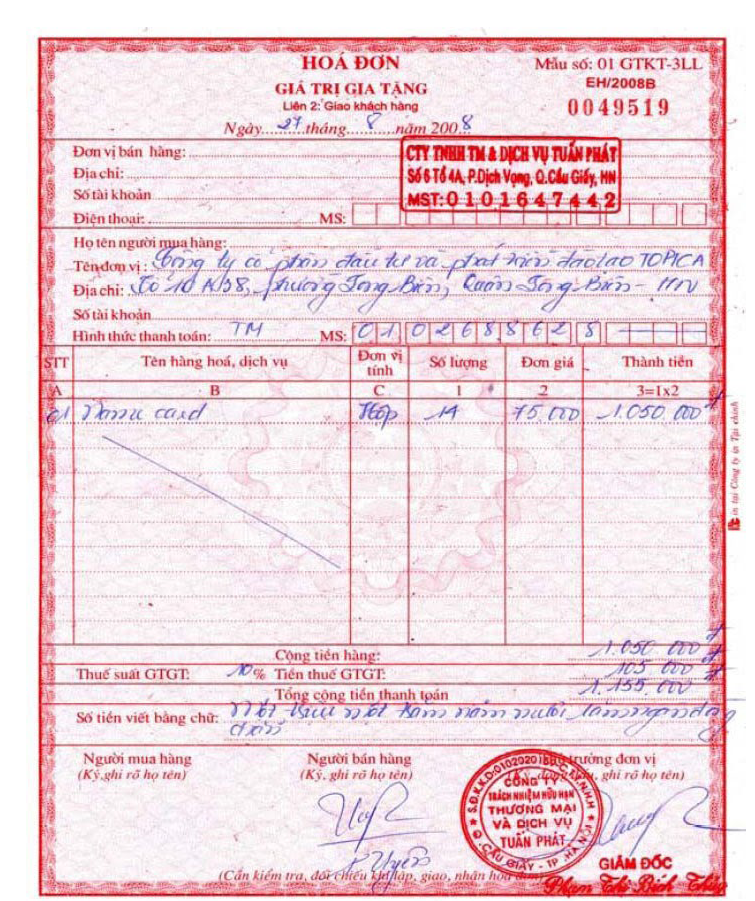 HOÁ ĐƠN
GIÁ TRỊ GIA TĂNG
Liên 2: Giao khách hàng
Ngày 27 tháng 8 năm 2008
Mẫu số: 01 GTKT-3LL
EH/2008B
0049519
Đơn vị bán hàng: CTY TNHH TM & DỊCH VỤ TUẤN PHÁT
Địa chỉ: Số 6 Tổ 4A, P.Dịch Vọng, Q.Cầu Giấy, HN
Số tài khoản
MST: 0101647442
Điện thoại: MS:
Họ tên người mua hàng:
Tên đơn vị: Công ty cổ phần đầu tư và phát triển đào tạo TOPICA
Địa chỉ: Tổ 10 phường Long Biên, Quận Long Biên - HN
Số tài khoản
Hình thức thanh toán: TM MS: 0102688628
STT Tên hàng hoá, dịch vụ Đơn vị tính Số lượng Đơn giá Thành tiền
A B C 1 2 3=1x2
01 Name card Hộp 14 75.000 1.050.000đ
Cộng tiền hàng: 1.050.000đ
Thuế suất GTGT: 10% Tiền thuế GTGT: 105.000đ
Tổng cộng tiền thanh toán 1.155.000đ
Số tiền viết bằng chữ: Một triệu một trăm năm mươi lăm ngàn đồng
chẵn
Người mua hàng Người bán hàng Thủ trưởng đơn vị
(Ký, ghi rõ họ tên) (Ký, ghi rõ họ tên) (Ký, đóng dấu, ghi rõ họ tên)
CÔNG TY
TRÁCH NHIỆM HỮU HẠN
THƯƠNG MẠI
VÀ DỊCH VỤ
TUẤN PHÁT
Q. CẦU GIẤY - TP. HÀ NỘI
GIÁM ĐỐC
(Cần kiểm tra, đối chiếu khi lập, giao, nhận hoá đơn)
Phạm Thị Bích Thủy
in tại Công ty in Tài chính